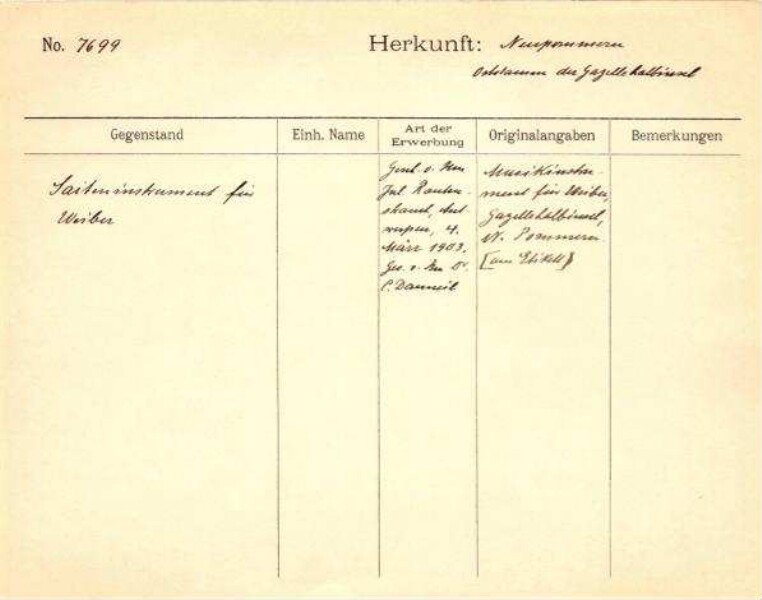 No. 7699
Herkunft: Neupommern
Oststamm der Gazellehalbinsel
Gegenstand
Einh. Name
Art der
Erwerbung
Originalangaben
Bemerkungen
Saiteninstrument für
Weiber
Gesch. v. Hrn
Jul. Rauten-
strauch, Ant-
werpen, 4.
März 1903.
Ges. v. Hrn Dr.
C. Danneil
Musikinstru-
ment für Weiber,
Gazellehalbinsel,
N. Pommern.